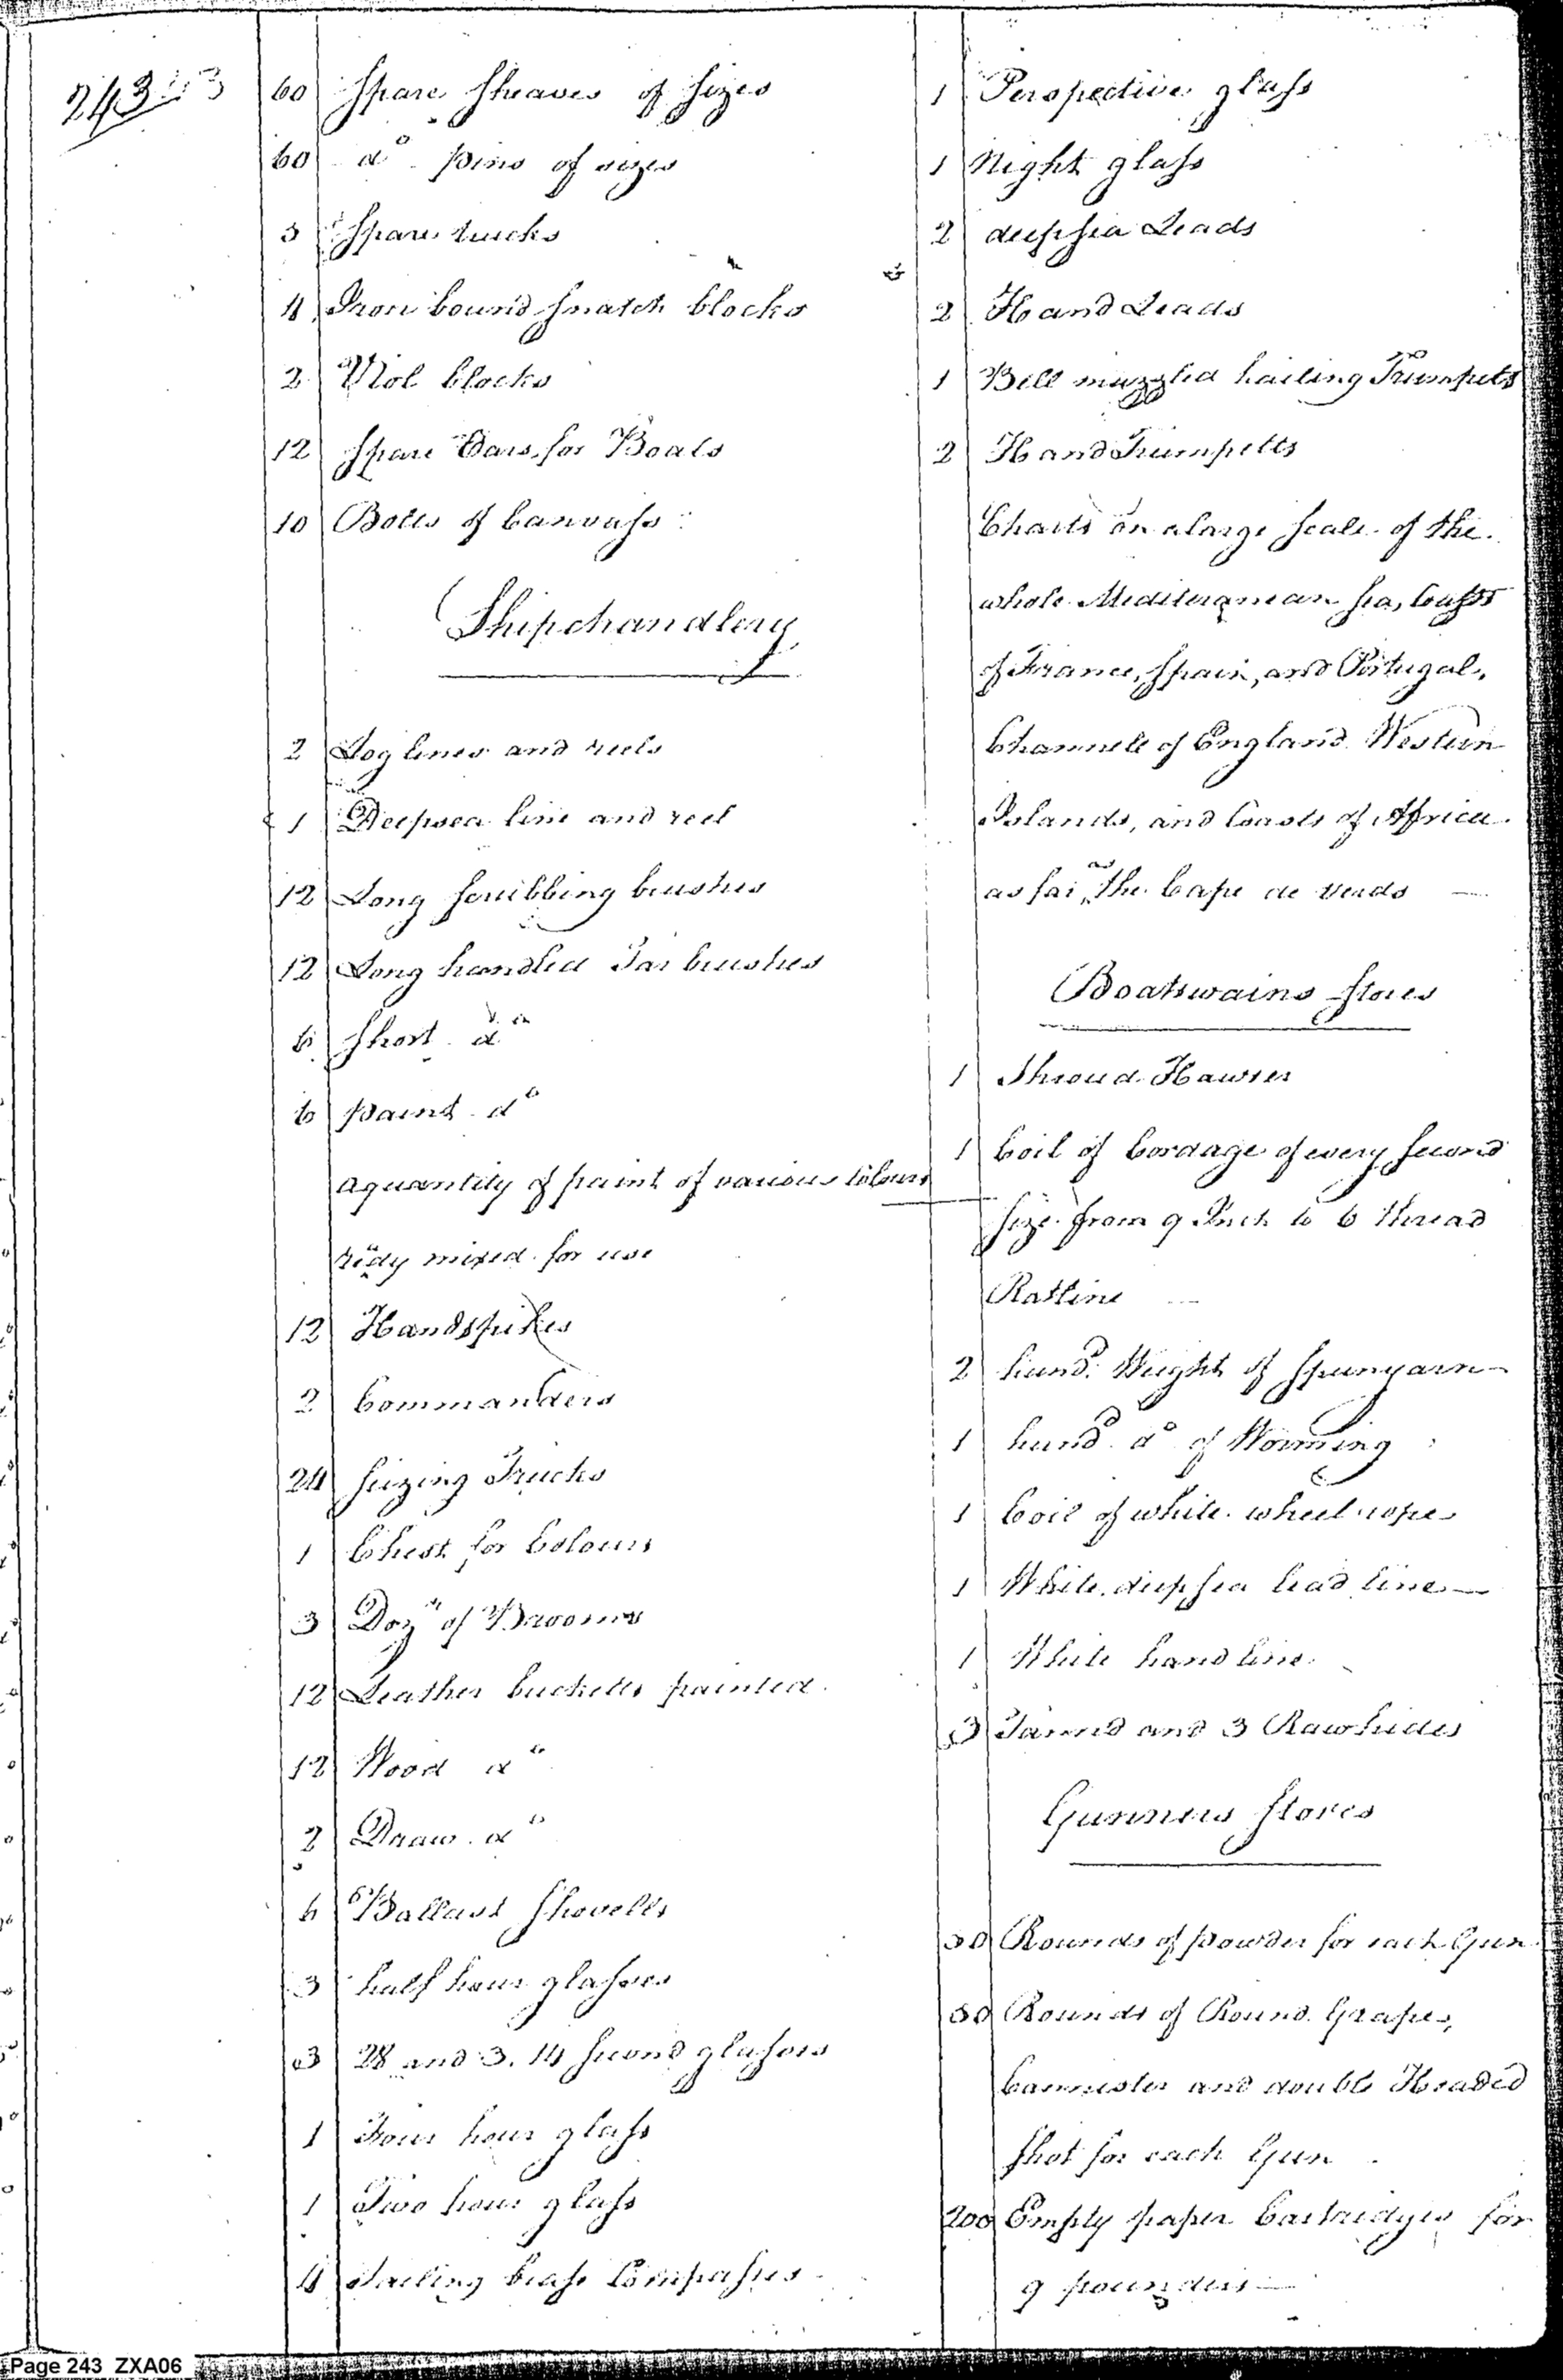 243
60 Spare Sheaves of sizes
60 do pins of sizes
3 Spare trucks
4 Iron bound snatch blocks
2 Viol blocks
12 Spare Oars for Boats
10 Bolts of Canvass
Shipchandlery
2 Log lines and reels
1 Deepsea line and reel
12 Long scrubbing brushes
12 Long handled Tar brushes
6 Short do
6 paint do
a quantity of paint of various Colours
redy mixed for use
12 Handspikes
2 Commanders
24 Seizing Trucks
1 Chest for Colours
3 Dozn of Brooms
12 Leather bucketts painted
12 Wood do
2 Draw do
6 Ballast Shovells
3 half hour glasses
3 28 and 3. 14 Second glasses
1 Four hour glass
1 Two hour glass
4 Sailing brass Compasses
1 Perspective glass
1 Night glass
2 deepsea Leads
2 Hand Leads
1 Bell muzzled hailing Trumpets
2 Hand Trumpetts
Charts on a large Scale of the
whole Mediteranean Sea, Coasts
of France, Spain, and Portugal,
Channell of England Western
Islands, and Coasts of Africa
as far as the Cape de Verds
Boatswains Stores
1 Shroud Hawser
1 Coil of Cordage of every Second
Size from 9 Inch to 6 thread
Ratline
2 hund. Weight of Spunyarn
1 hund do of Worming
1 Coil of white wheel rope
1 White deepsea lead line
1 White hand line
3 Tannd and 3 Rawhides
Gunners Stores
30 Rounds of powder for each Gun
30 Rounds of Round Grape,
Cannister and double Headed
Shot for each Gun
200 Empty paper Cartridges for
9 pounders
Page 243 ZXA06